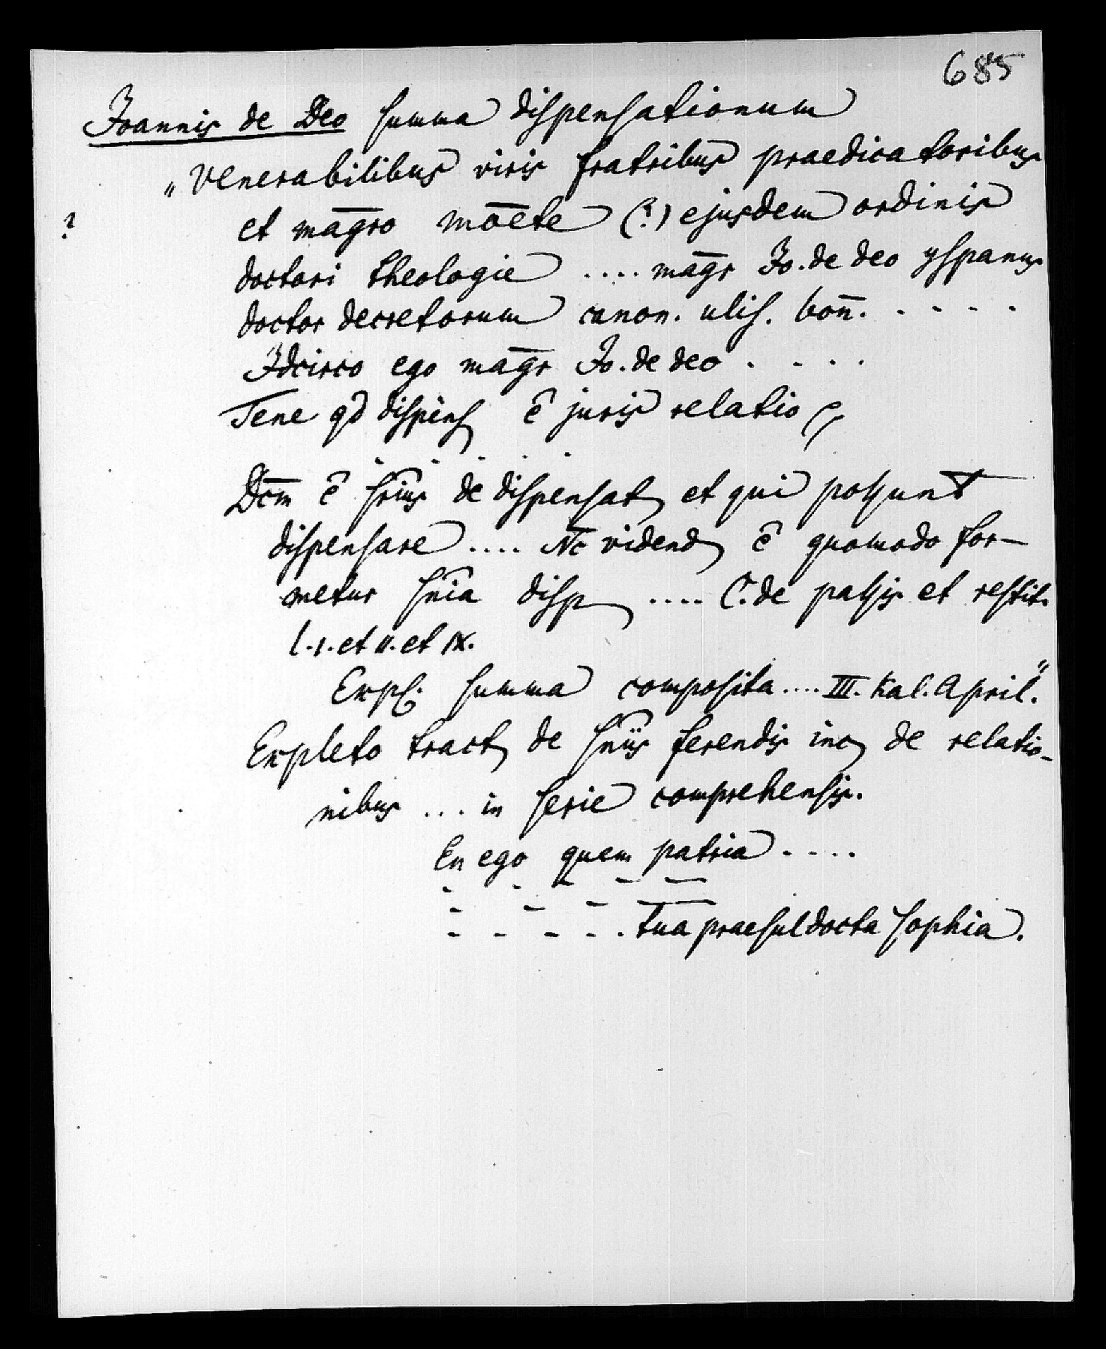 685
Joannis de Deo summa dispensationum
„Venerabilibus viris fratribus praedicatoribus
? et māgro mōēte (?) ejusdem ordinis
doctori theologie .... māgr Jo. de deo yspanus
doctor decretorum canon. ulis. boñ. . - - - .
Idcirco ego māgr Jo. de deo . . . .
Tene qd dispens ē juris relatio
Dcm ē sriis de dispensat et qui possunt
dispensare .... Nc vidend ē quomodo for-
metur snia disp .... C. de passis et restit.
l. I. et II. et IX.
Expl. summa composita .... III. Kal. April.“
Expleto tract de sniis ferendis inc de relatio-
nibus ... in serie comprehensis.
En ego quem patria ....
- - - - . tua praesul docta sophia.